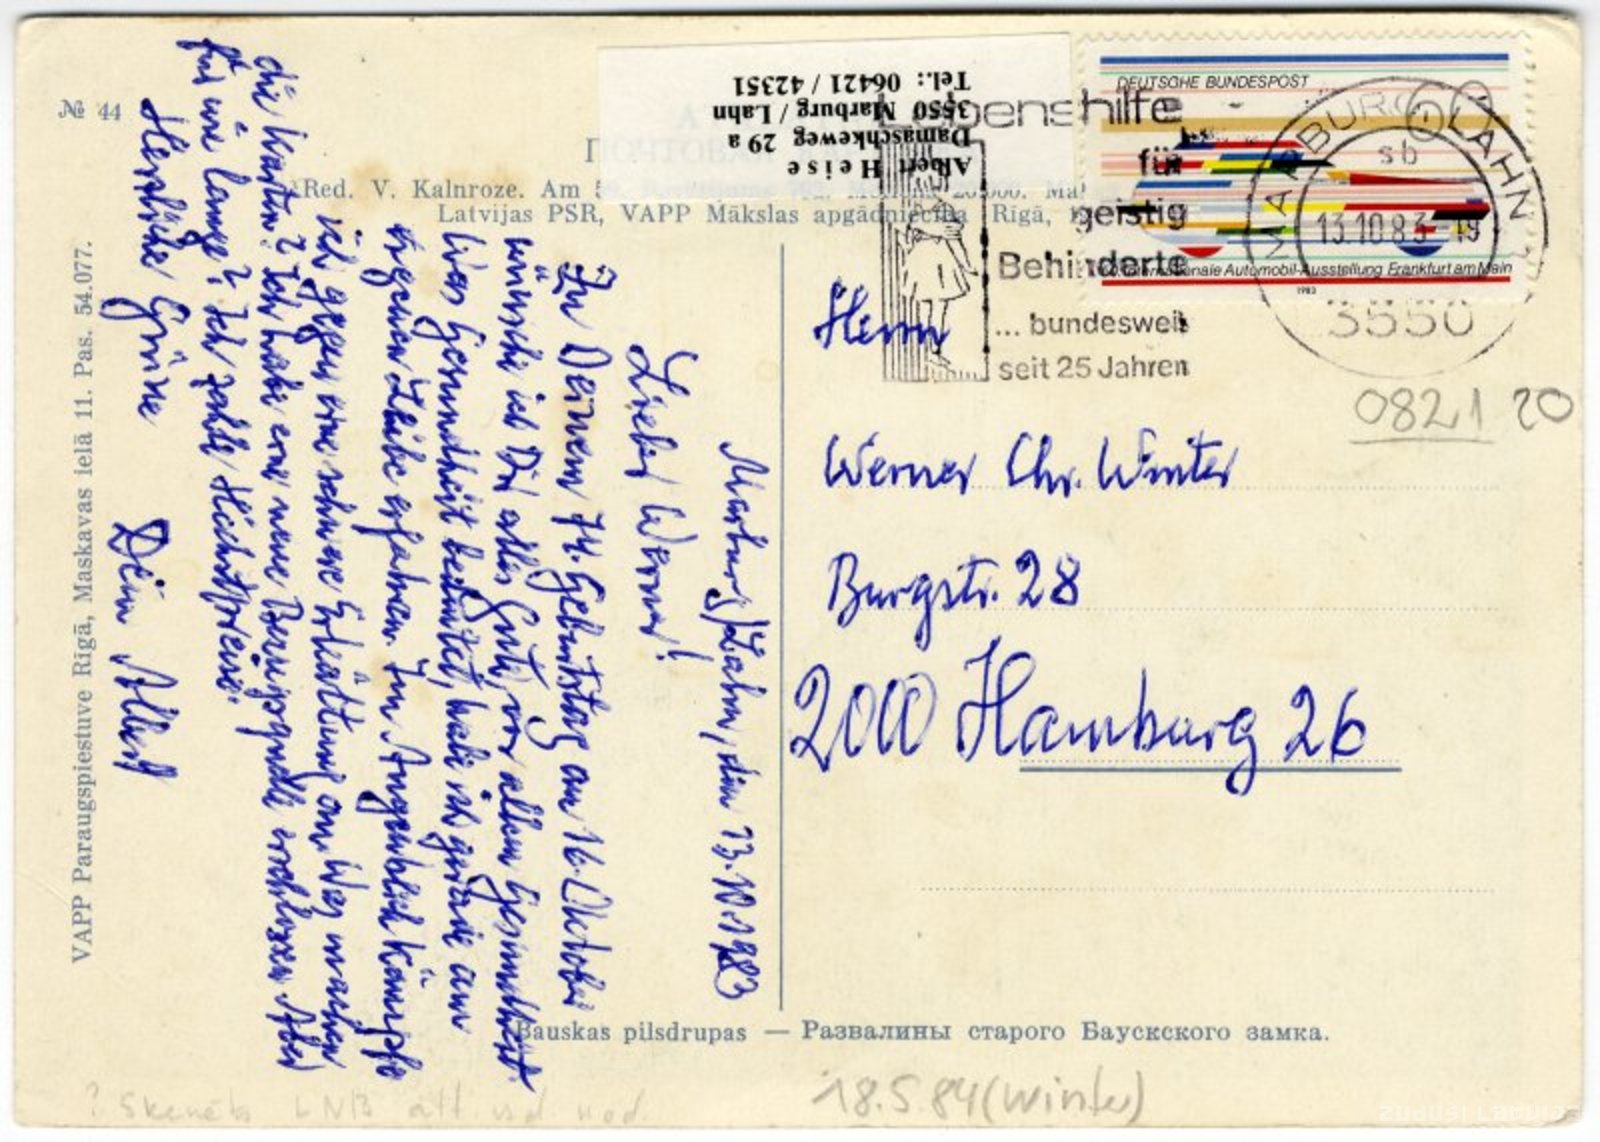 № 44
Albert Heise
Damaschkeweg 29 a
3550 Marburg / Lahn
Tel.: 06421 / 42351
ПОЧТОВАЯ
Red. V. Kalnroze. Am
Latvijas PSR, VAPP Mākslas apgādniecība Rīgā,
VAPP Paraugspiestuve Rīgā, Maskavas ielā 11. Pas. 54.077.
DEUTSCHE BUNDESPOST
Internationale Automobil-Ausstellung Frankfurt am Main
1983
Lebenshilfe
für
geistig
Behinderte
... bundesweit
seit 25 Jahren
MARBURG, LAHN 1
sb
13.10.83-19
3550
0821 20
Herrn
Werner Chr. Winter
Burgstr. 28
2000 Hamburg 26
Marburg/Lahn, den 13.10.1983
Lieber Werner!
Zu Deinem 74. Geburtstag am 16. Oktober
wünsche ich Dir alles Gute, vor allem Gesundheit.
Was Gesundheit bedeutet, habe ich gerade am
eigenen Leibe erfahren. Im Augenblick kämpfe
ich gegen eine schwere Erkältung an. Was machen
die Karten? Ich habe eine neue Bezugsquelle erschlossen. Aber
für wie lange? Ich zahle Höchstpreise.
Herzliche Grüße
Dein Albert
Bauskas pilsdrupas — Развалины старого Баускского замка.
18.5.84 (Winter)
? Skenēts LNB